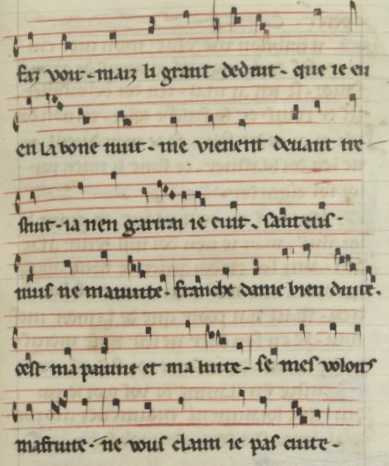 faz voir. maiz li grant deduit. que ie en
en la bone nuit. me vienent deuant tre
stuit. ia nen garirai ie cuit. sauteus.
nuis ne maiutte. franche dame bien duite.
cest ma painne et ma luite. se mes voloirs
mafruite. ne vous claim ie pas cuite.